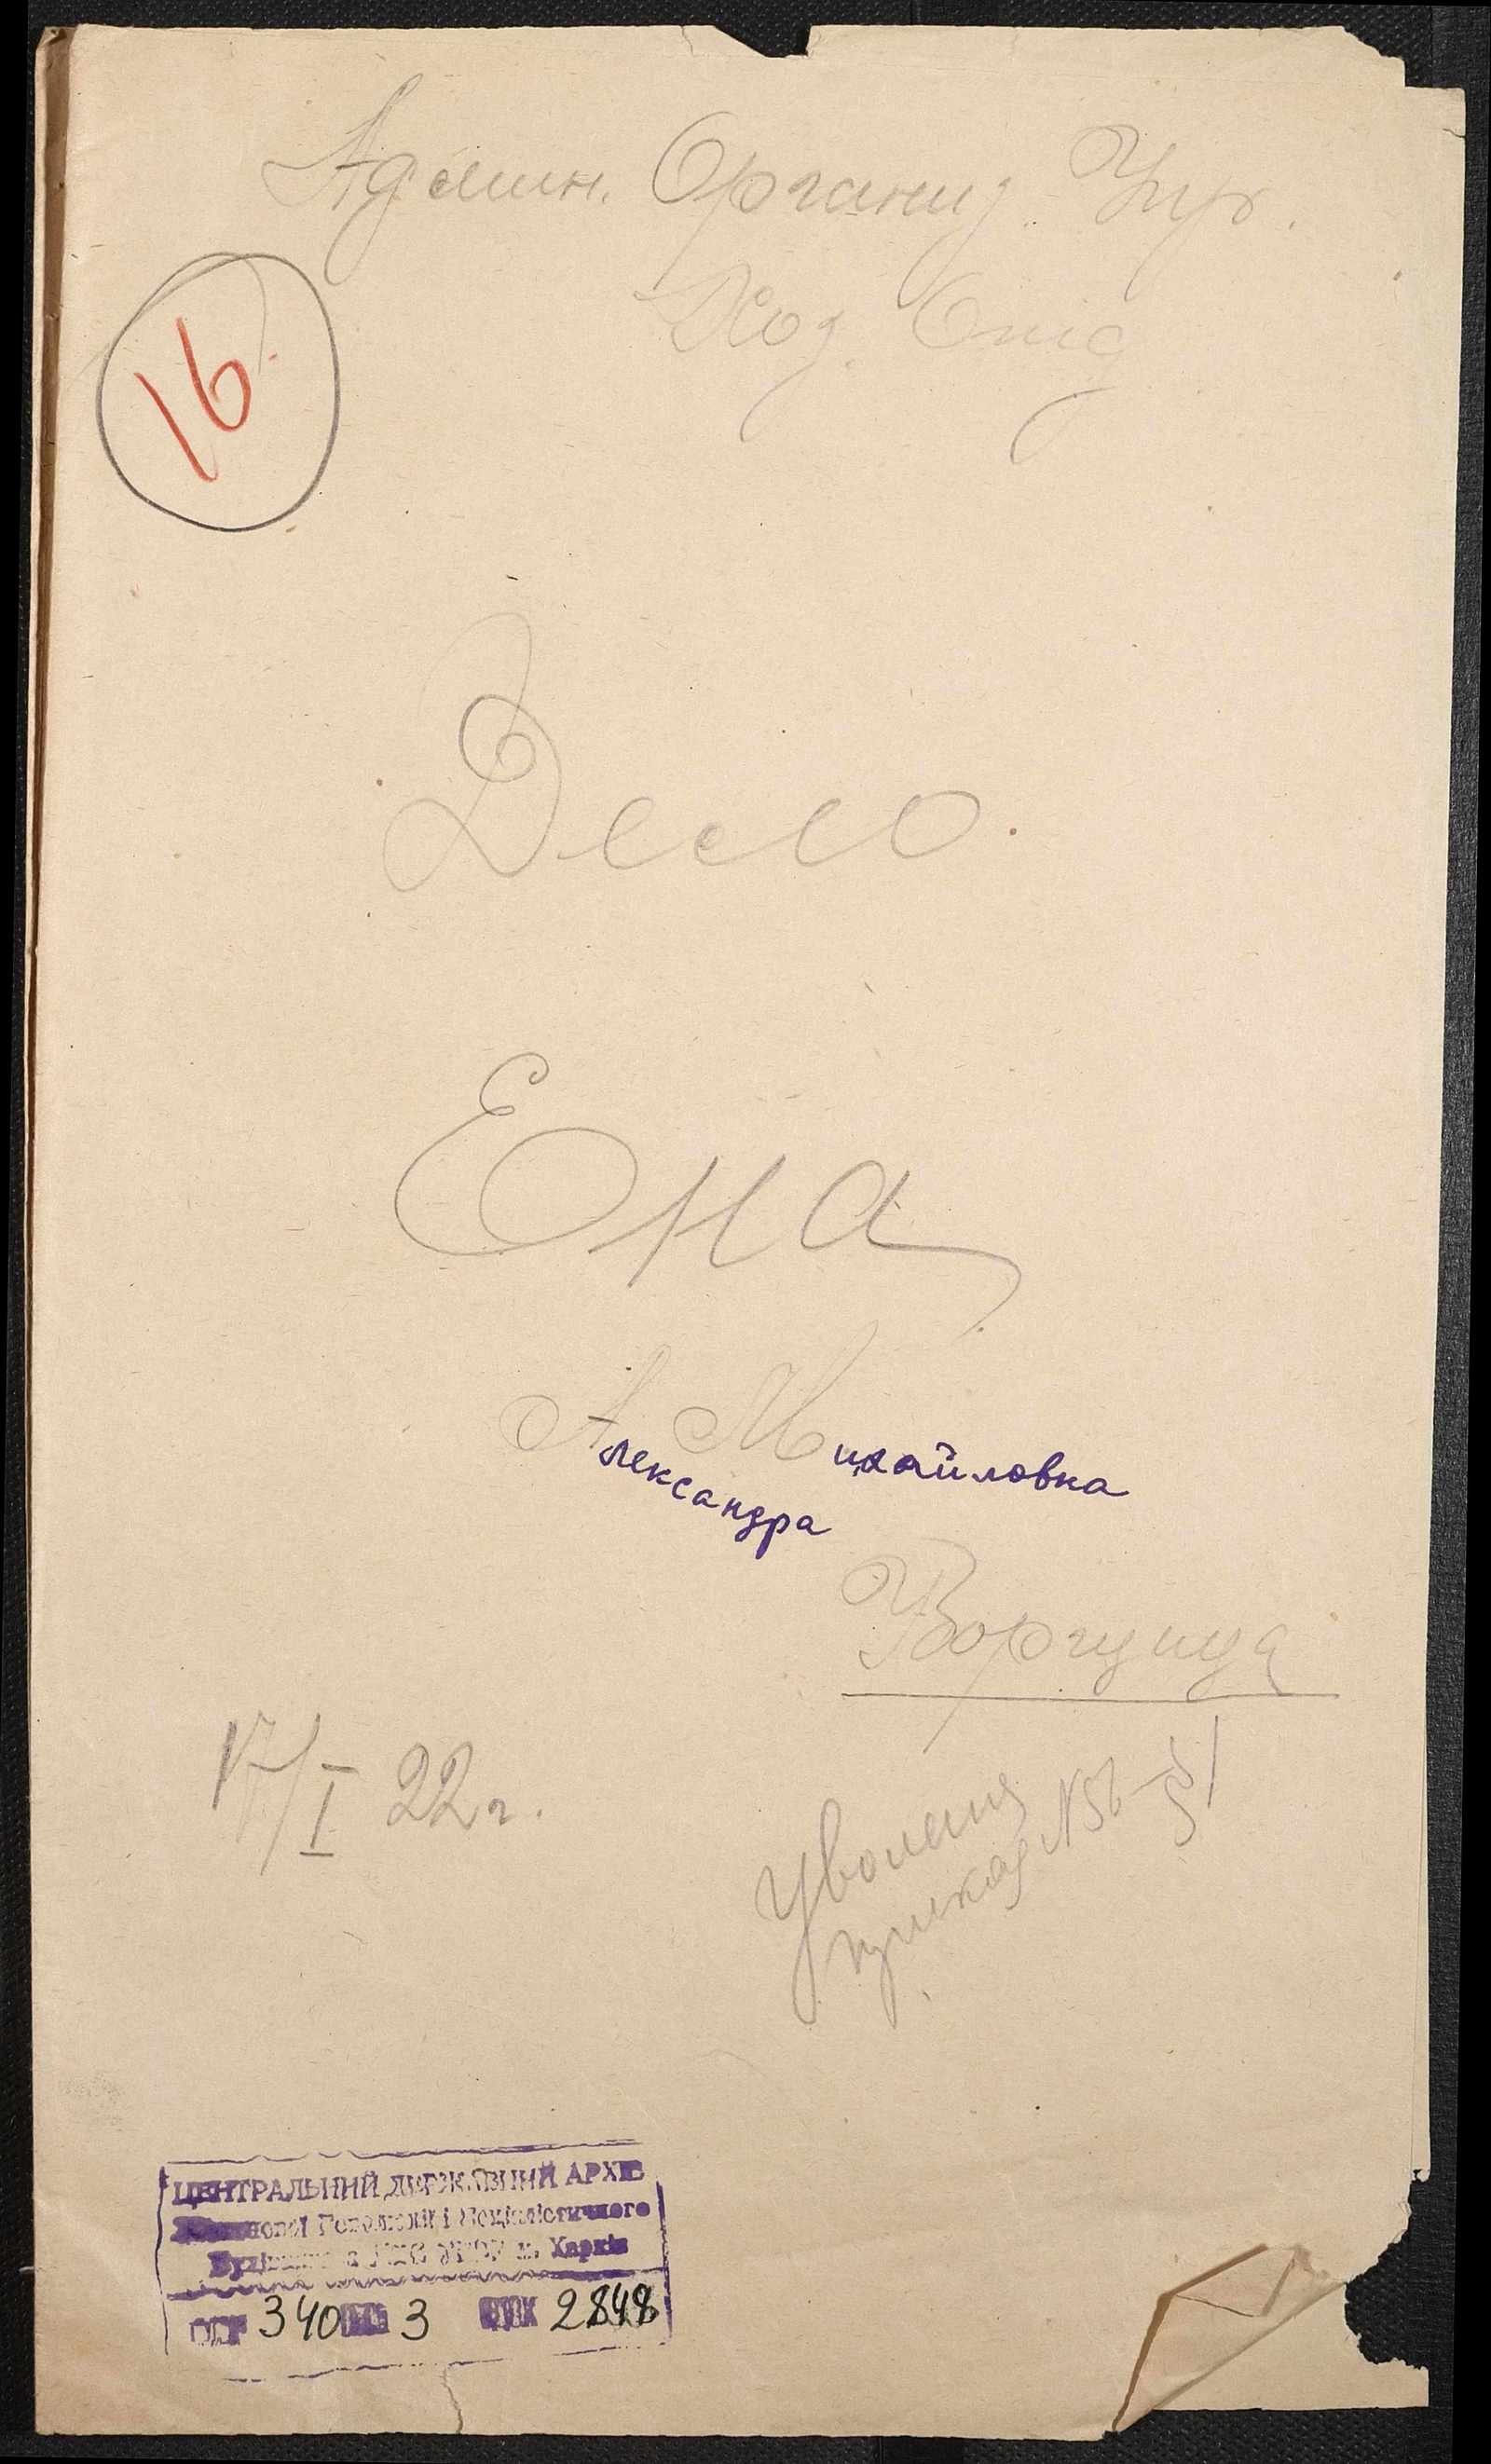 Админ. Организ. Упр.
Хоз. Отд
16.
Дело.
Ена
А М ихайловна
лександра
17/I 22 г.
Уволена
приказ N 56 - § 1
ЦЕНТРАЛЬНИЙ ДЕРЖАВНИЙ АРХІВ
Жовтневої Революції і Соціалістичного
Будівництва УРСР м. Харків
340 3 2848